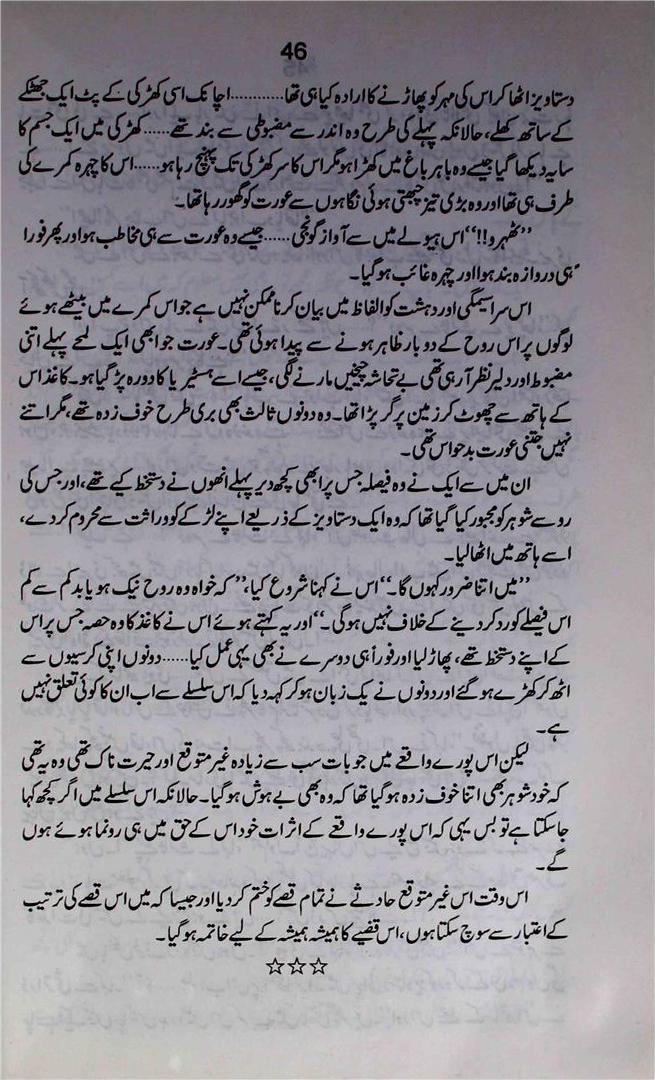 46
دستاویز اٹھا کر اس کی مہر کو پھاڑنے کا ارادہ کیا ہی تھا............اچانک اسی کھڑکی کے پٹ ایک جھٹکے
کے ساتھ کھلے، حالانکہ پہلے کی طرح وہ اندر سے مضبوطی سے بند تھے......کھڑکی میں ایک جسم کا
سایہ دیکھا گیا جیسے وہ باہر باغ میں کھڑا ہو مگر اس کا سر کھڑکی تک پہنچ رہا ہو......اس کا چہرہ کمرے کی
طرف ہی تھا اور وہ بڑی تیز چبھتی ہوئی نگاہوں سے عورت کو گھور رہا تھا۔
’’ٹھہرو!!‘‘ اس ہیولے میں سے آواز گونجی......جیسے وہ عورت سے ہی مخاطب ہو اور پھر فوراً
ہی دروازہ بند ہوا اور چہرہ غائب ہو گیا۔
اس سراسیمگی اور دہشت کو الفاظ میں بیان کرنا ممکن نہیں ہے جو اس کمرے میں بیٹھے ہوئے
لوگوں پر اس روح کے دوبار ظاہر ہونے سے پیدا ہوئی تھی۔ عورت جو ابھی ایک لمحے پہلے اتنی
مضبوط اور دلیر نظر آ رہی تھی بے تحاشہ چیخیں مارنے لگی، جیسے اسے ہسٹیریا کا دورہ پڑ گیا ہو۔ کاغذ اس
کے ہاتھ سے چھوٹ کر زمین پر گر پڑا تھا۔ وہ دونوں ثالث بھی بری طرح خوف زدہ تھے، مگر اتنے
نہیں جتنی عورت بدحواس تھی۔
ان میں سے ایک نے وہ فیصلہ جس پر ابھی کچھ دیر پہلے انھوں نے دستخط کیے تھے، اور جس کی
رو سے شوہر کو مجبور کیا گیا تھا کہ وہ ایک دستاویز کے ذریعے اپنے لڑکے کو وراثت سے محروم کر دے،
اسے ہاتھ میں اٹھا لیا۔
’’میں اتنا ضرور کہوں گا۔‘‘ اس نے کہنا شروع کیا، ’’کہ خواہ وہ روح نیک ہو یا بد کم سے کم
اس فیصلے کو رد کر دینے کے خلاف نہیں ہو گی۔‘‘ اور یہ کہتے ہوئے اس نے کاغذ کا وہ حصہ جس پر اس
کے اپنے دستخط تھے، پھاڑ لیا اور فوراً ہی دوسرے نے بھی یہی عمل کیا......دونوں اپنی کرسیوں سے
اٹھ کر کھڑے ہو گئے اور دونوں نے یک زبان ہو کر کہہ دیا کہ اس سلسلے سے اب ان کا کوئی تعلق نہیں
ہے۔
لیکن اس پورے واقعے میں جو بات سب سے زیادہ غیر متوقع اور حیرت ناک تھی وہ یہ تھی
کہ خود شوہر بھی اتنا خوف زدہ ہو گیا تھا کہ وہ بھی بے ہوش ہو گیا۔ حالانکہ اس سلسلے میں اگر کچھ کہا
جا سکتا ہے تو بس یہی کہ اس پورے واقعے کے اثرات خود اس کے حق میں ہی رونما ہوئے ہوں
گے۔
اس وقت اس غیر متوقع حادثے نے تمام قصے کو ختم کر دیا اور جیسا کہ میں اس قصے کی ترتیب
کے اعتبار سے سوچ سکتا ہوں، اس قضیے کا ہمیشہ ہمیشہ کے لیے خاتمہ ہو گیا۔
☆☆☆